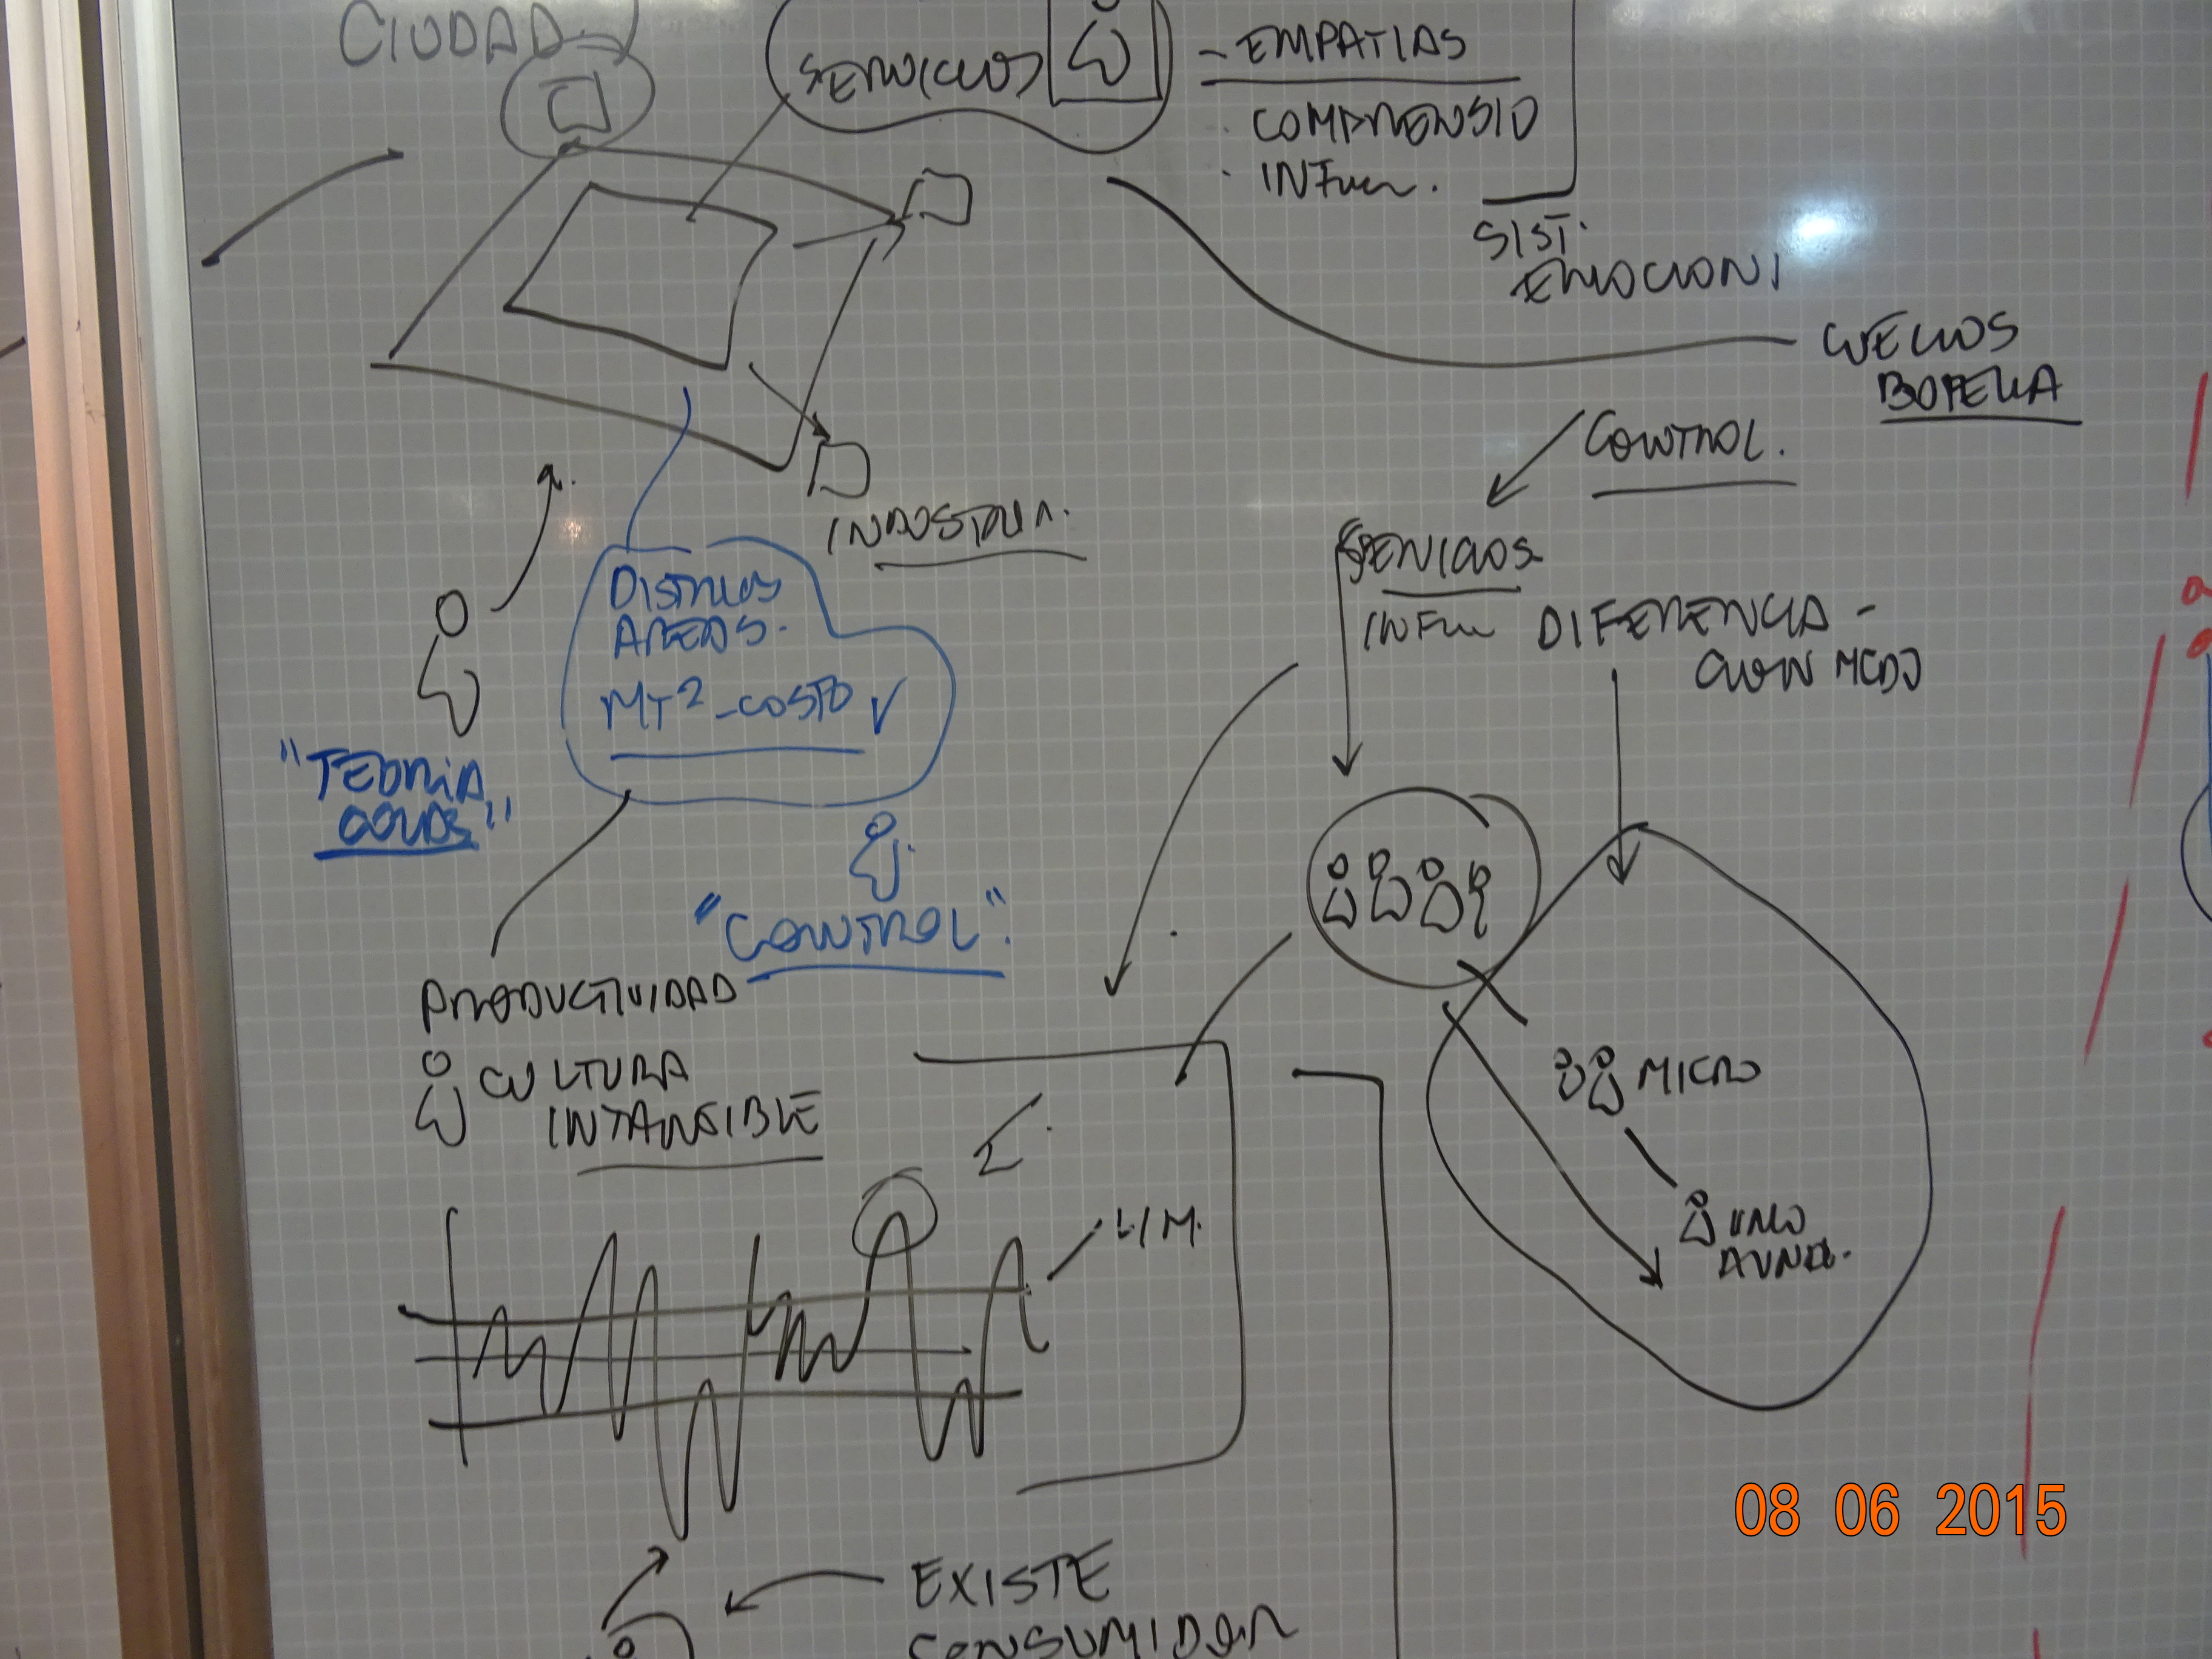 CIUDAD
SERVICIOS
- EMPATIAS
· COMPRENSIO
· INFLU.
SIST.
EMOCIONI
CUELLOS
BOTELLA
CONTROL.
SERVICIOS
DIFERENCIA -
INDUSTRIA.
AREAS.
MT2 - COSTO √
"TEORIA
COLAS"
"CONTROL".
PRODUCTIVIDAD
CULTURA
INTANSIBLE
MICRO
LIM.
EXISTE
CONSUMIDOR
08 06 2015